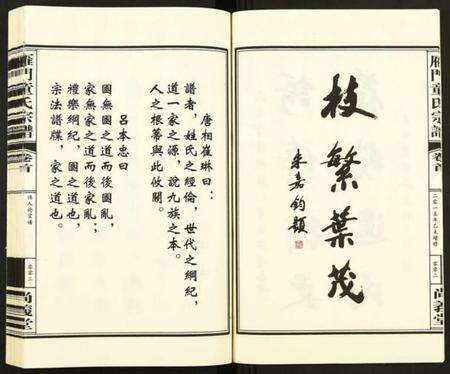 雁門童氏宗譜
卷首
二零一五年乙未續修
尚義堂
枝繁葉茂
朱嘉鈞題
唐相崔琳曰：
譜者，姓氏之經倫，世代之綱紀，
道一家之源，說九族之本。
人之根蒂與此攸關。
呂本忠曰
國無國之道而後國亂，
家無家之道而後家亂；
禮樂綱紀，國之道也，
宗法譜牒，家之道也。
雁門童氏宗譜
卷首
尚義堂